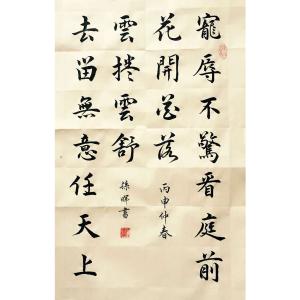 寵辱不驚看庭前
花開花落
丙申仲春
去留無意任天上
雲捲雲舒
徐書